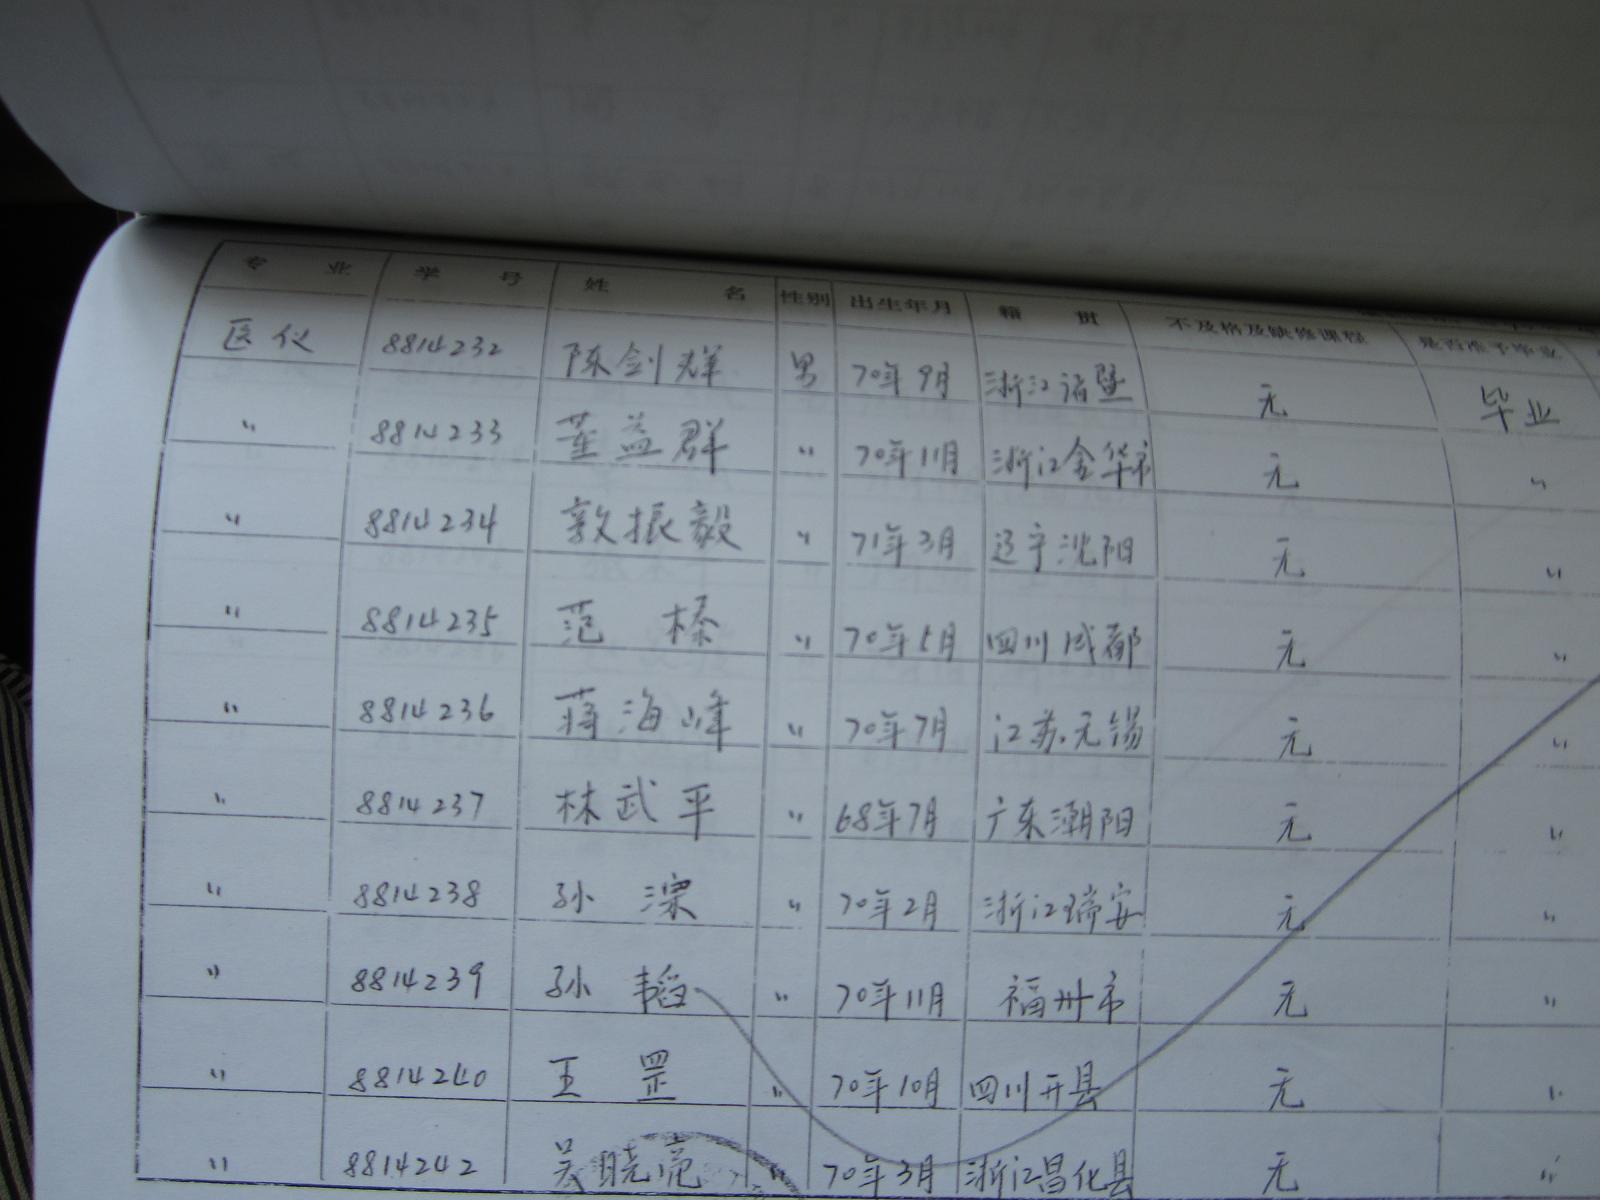 专 业 学 号 姓 名 性别 出生年月 籍 贯 不及格及缺修课程 是否准予毕业
医仪 8814232 陈剑辉 男 70年9月 浙江诸暨 无 毕业
〃 8814233 董益群 〃 70年11月 浙江金华市 无 〃
〃 8814234 敦振毅 〃 71年3月 辽宁沈阳 无 〃
〃 8814235 范榛 〃 70年5月 四川成都 无 〃
〃 8814236 蒋海峰 〃 70年7月 江苏无锡 无 〃
〃 8814237 林武平 〃 68年7月 广东潮阳 无 〃
〃 8814238 孙 〃 70年2月 浙江瑞安 无 〃
〃 8814239 孙韬 〃 70年11月 福州市 无 〃
〃 8814240 王罡 〃 70年10月 四川开县 无 〃
〃 8814242 吴晓亮 〃 70年3月 浙江昌化县 无 〃